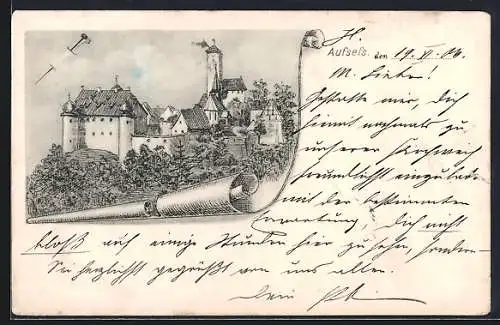 H.
Aufseß. den 19. VI. 06.
M. Lieber!
Gestatte mir, Dich
hiermit nochmals zu
unserer Kirchweih
freundlichst einzuladen
mit der bestimmten
Erwartung, Dich nicht
bloß auf einige Stunden hier zu sehen, sondern
Sei herzlichst gegrüßt von uns allen.
Dein